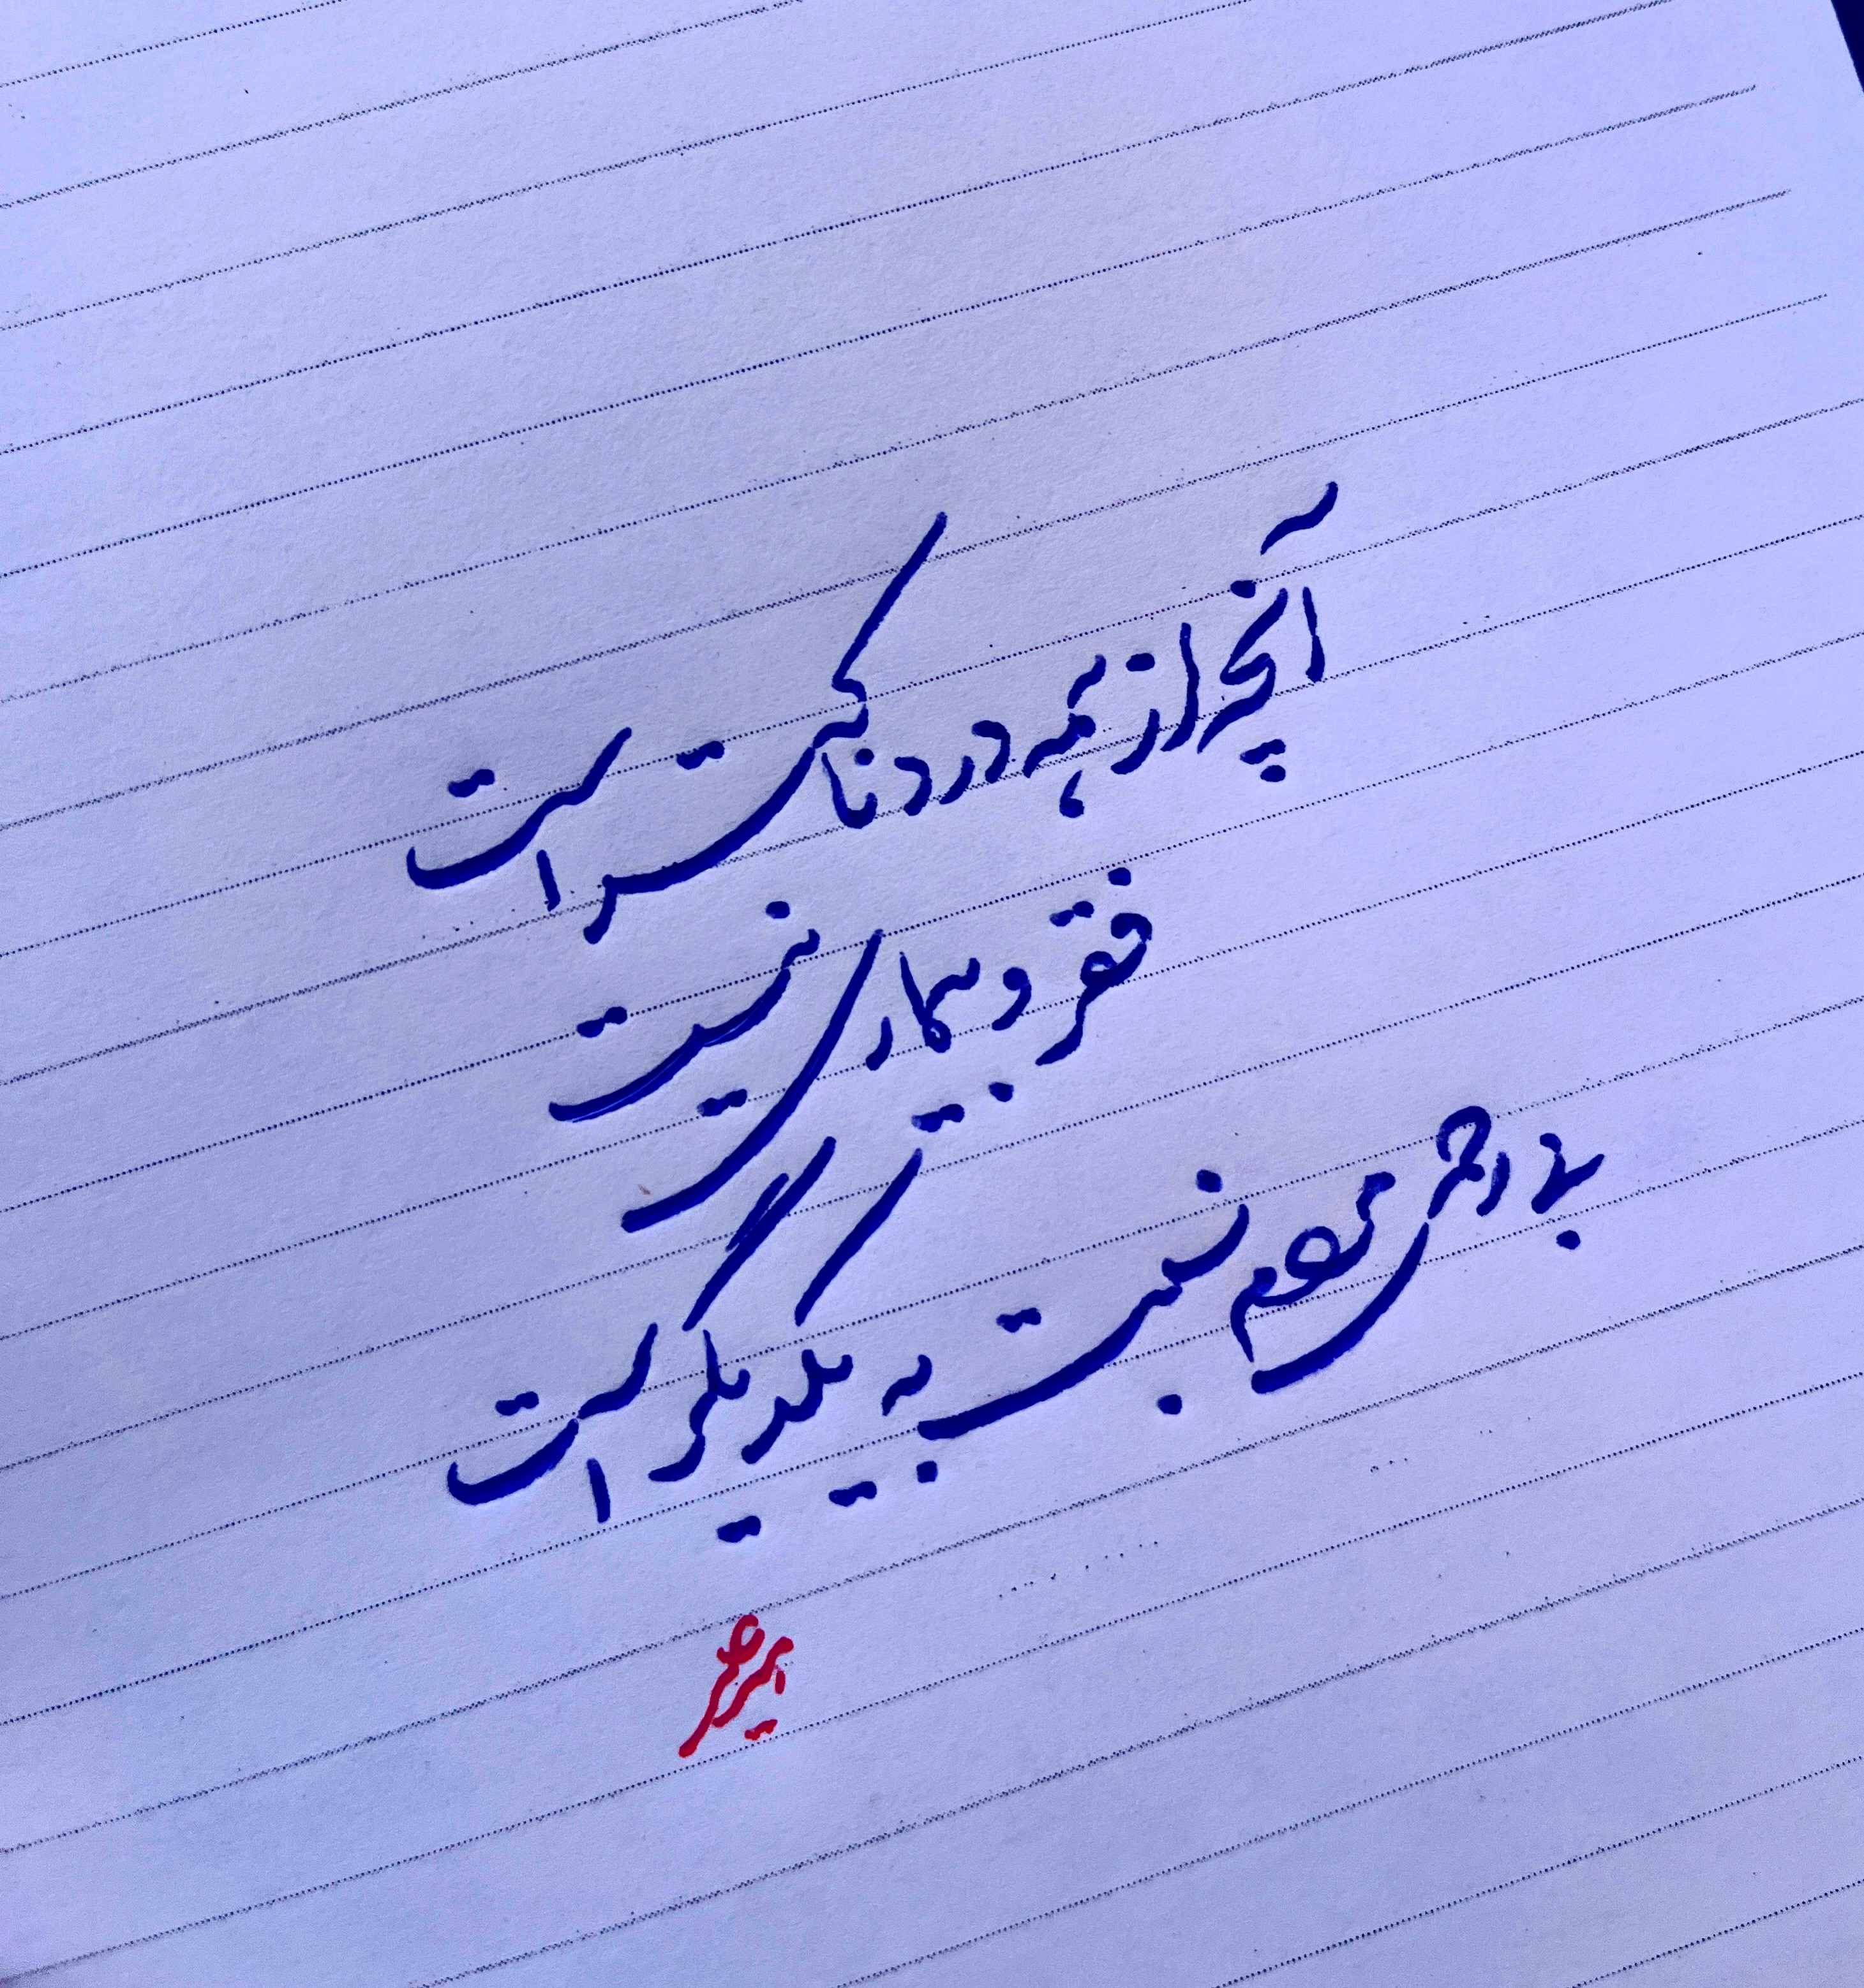 آنچه از همه دردناکتر است
فقر و بیماری نیست
بی رحمی مردم نسبت به یکدیگر است